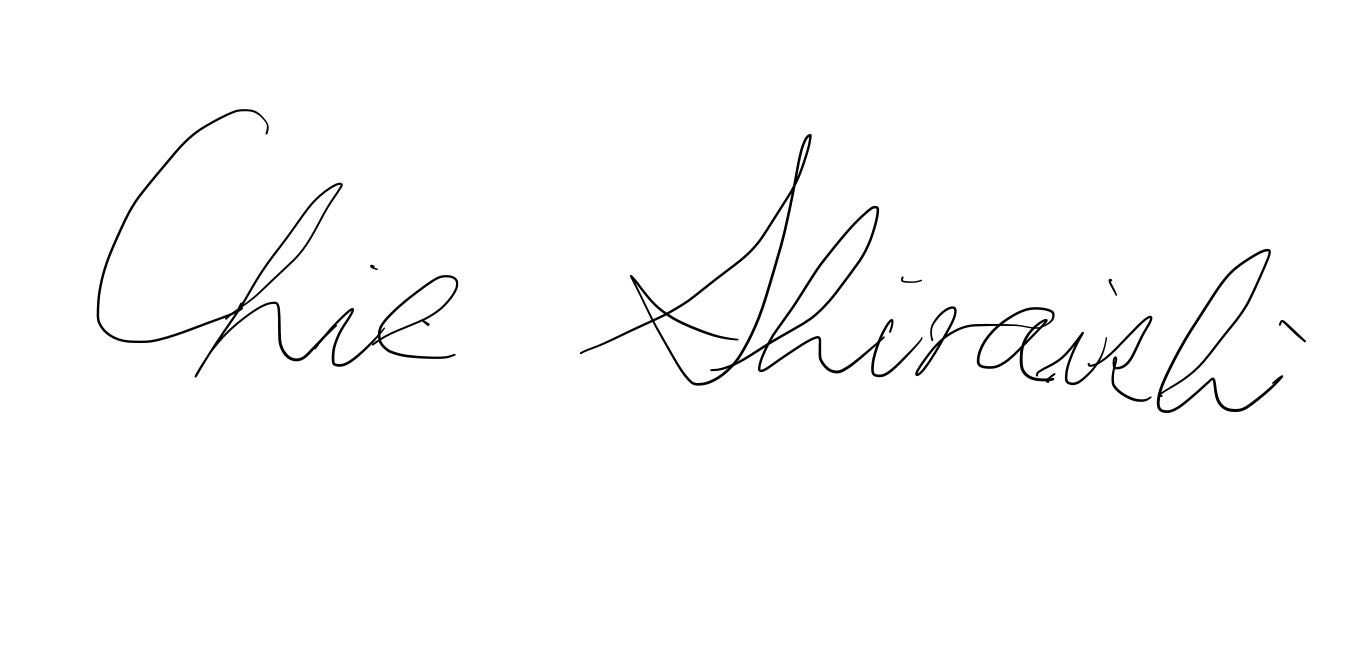 Chie Shiraishi